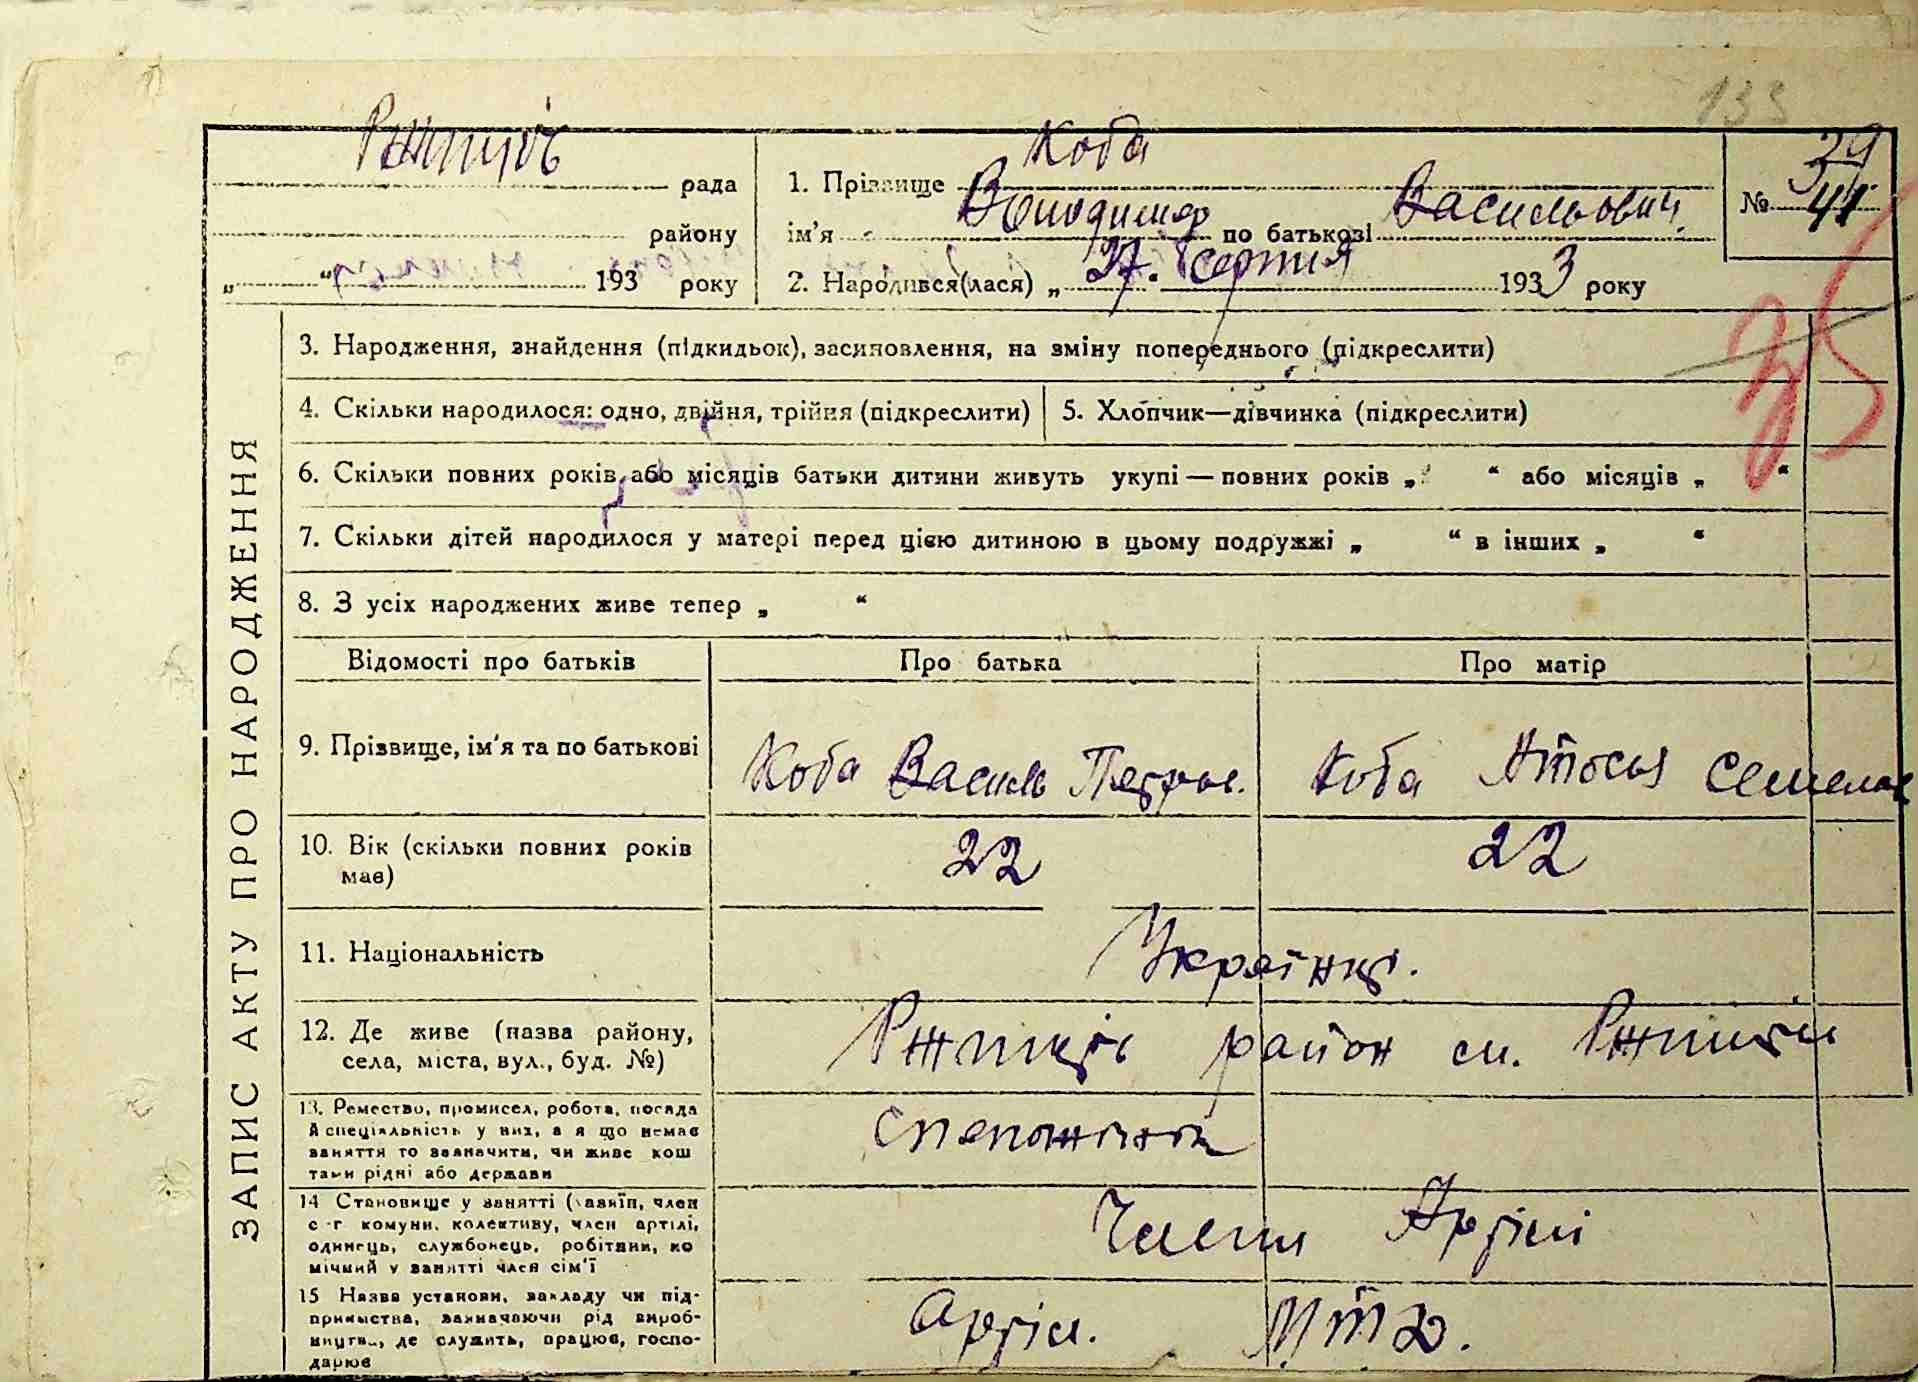 133
Ржищів рада
району
„ “ 193 року
Коба
1. Прізвище
ім'я Володимер по батькові Васильович
№ 39 41
2. Народився(лася) „ 27. серпня 1933 року
35
ЗАПИС АКТУ ПРО НАРОДЖЕННЯ
3. Народження, знайдення (підкидьок), засиновлення, на зміну попереднього (підкреслити)
4. Скільки народилося: одно, двійня, трійня (підкреслити) 5. Хлопчик—дівчинка (підкреслити)
6. Скільки повних років або місяців батьки дитини живуть укупі — повних років „ “ або місяців „ “
7. Скільки дітей народилося у матері перед цією дитиною в цьому подружжі „ “ в інших „ “
8. З усіх народжених живе тепер „ “
Відомості про батьків Про батька Про матір
9. Прізвище, ім'я та по батькові Коба Василь Петров. Коба Мтося Семенов
10. Вік (скільки повних років 22 22
має)
11. Національність Українці.
12. Де живе (назва району, Ржищів район см. Ржищів
села, міста, вул., буд. №)
13. Ремество, промисел, робота, посада
й спеціяльність у них, а я що немає
заняття то зазначити, чи живе кош
тами рідні або держави
14 Становище у занятті (хазяїн, член Члени Артілі
с-г комуни, колективу, член артілі,
одинець, службовець, робітник, по
мічний у занятті член сім'ї
15 Назва установи, закладу чи під- Артіл.
приємства, зазначаючи рід вироб-
ництва, де служить, працює, госпо-
дарює